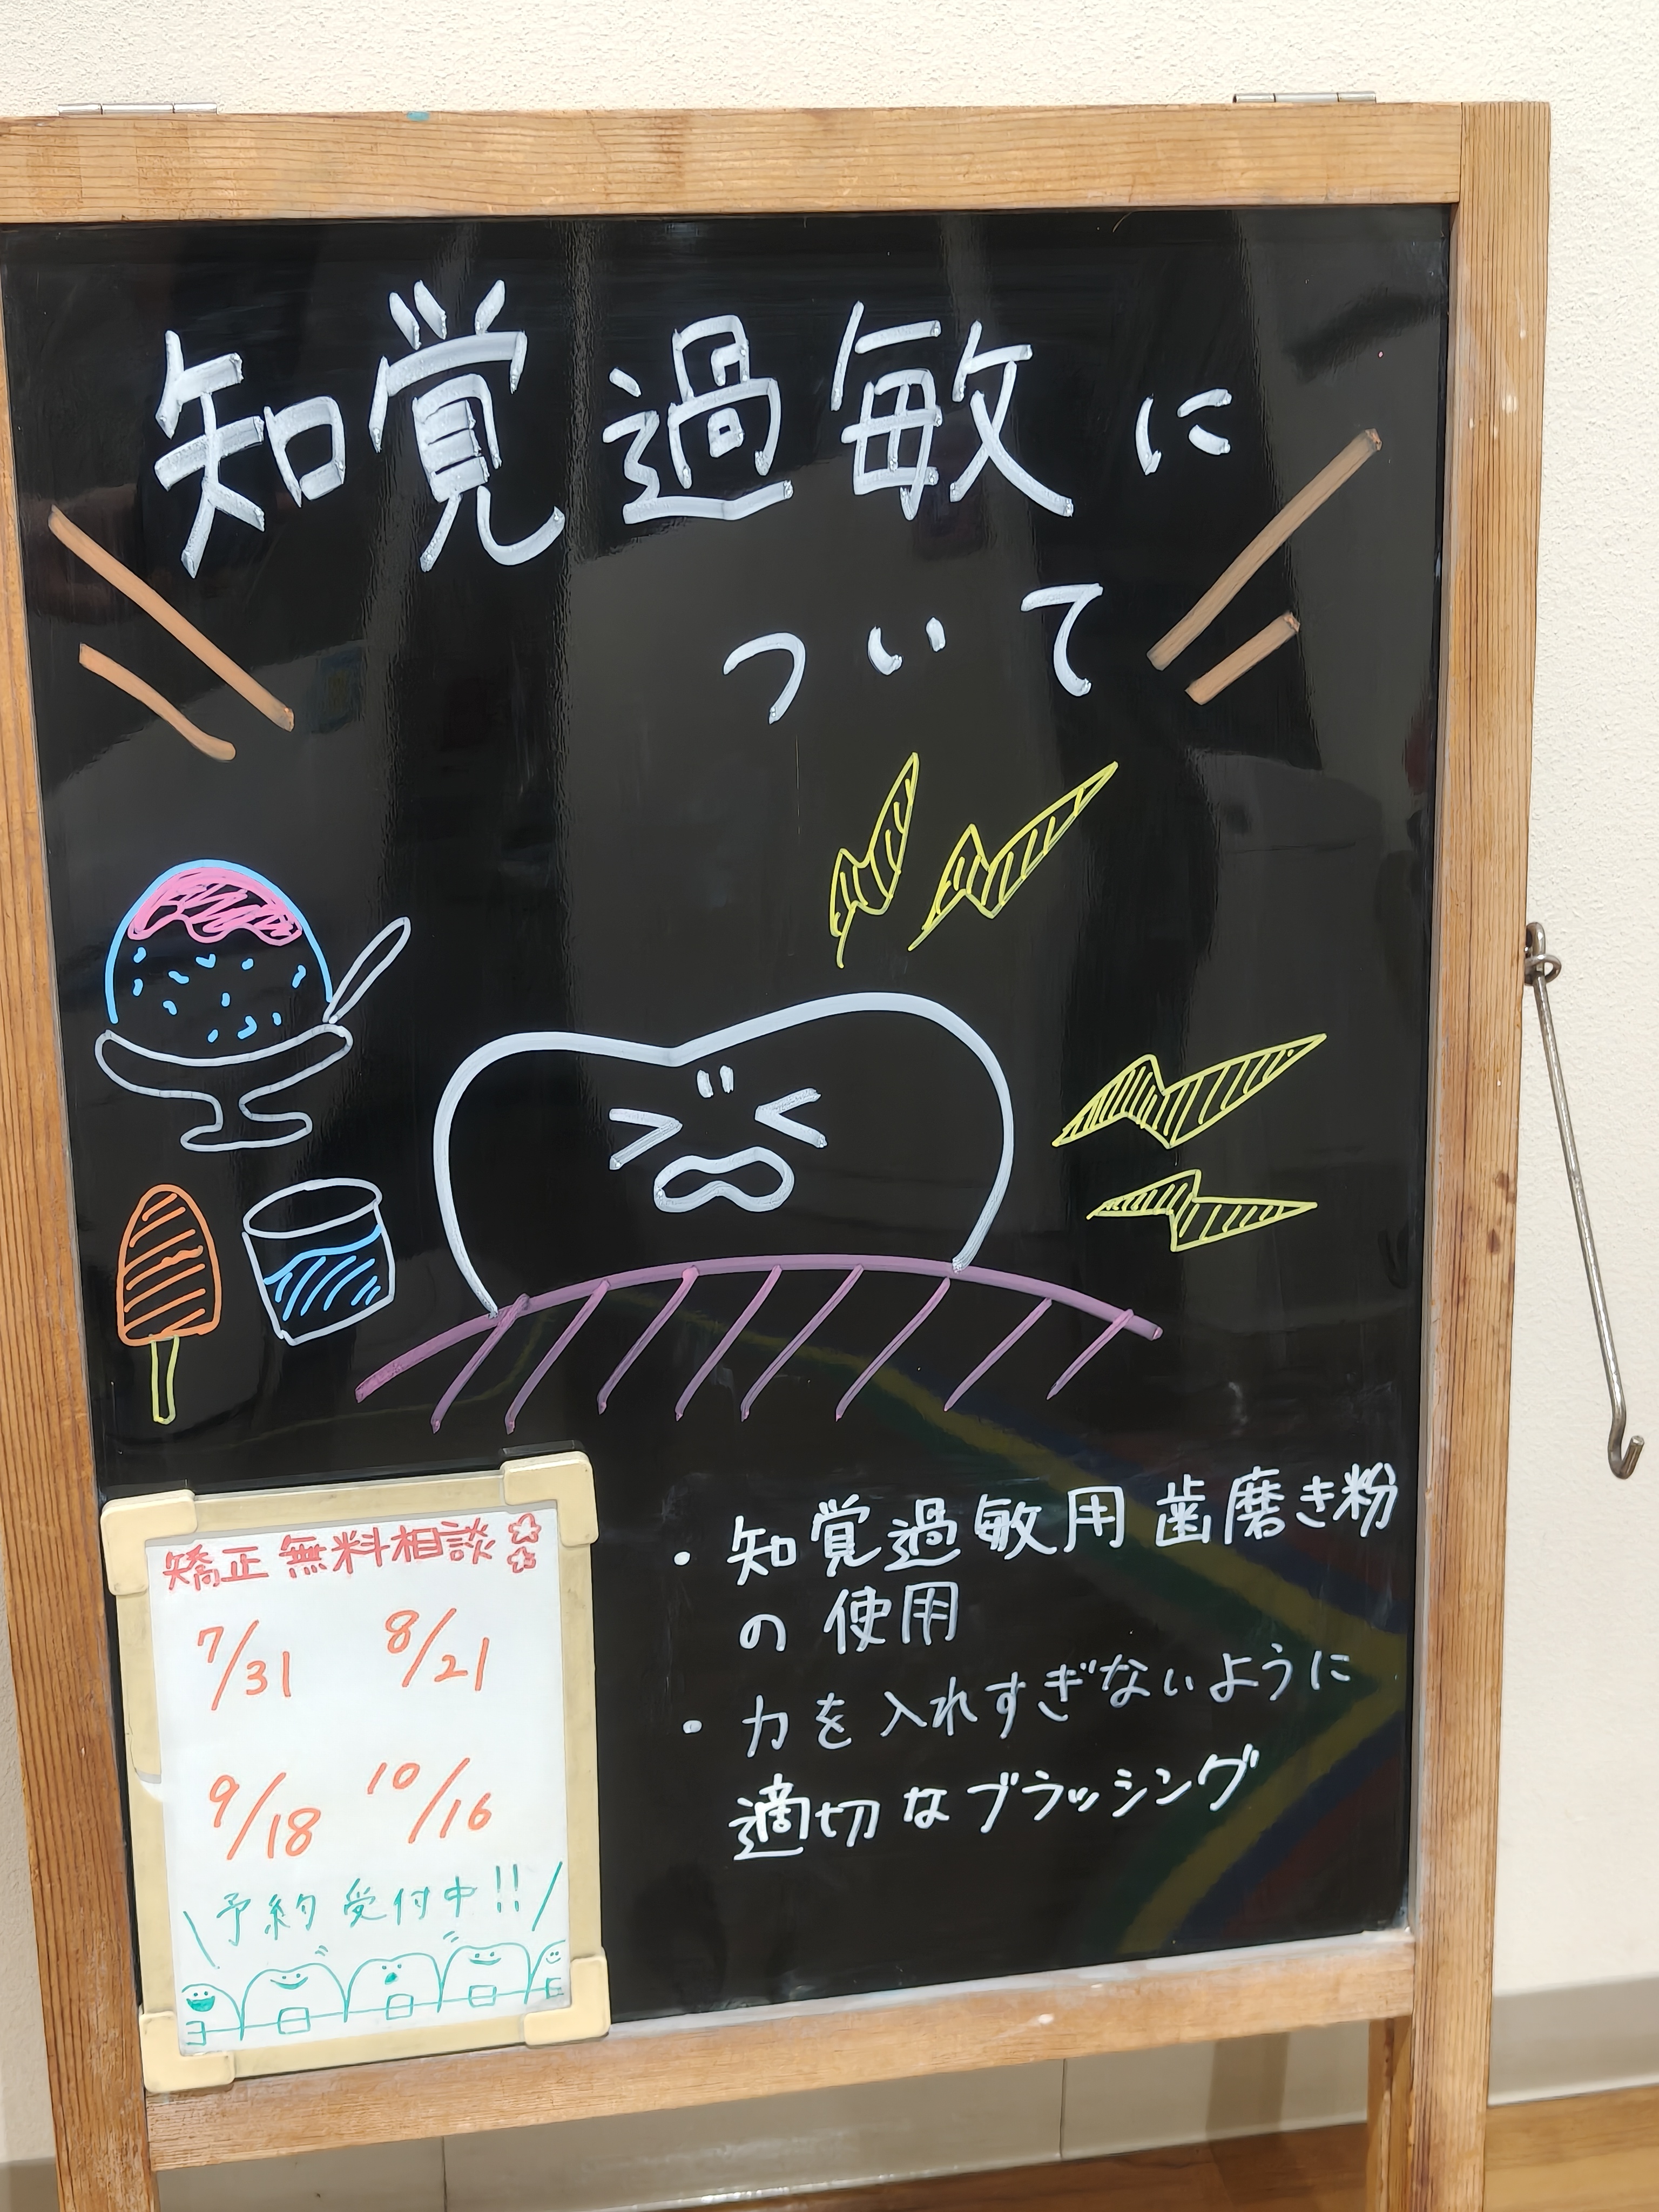 知覚過敏に
ついて
・知覚過敏用歯磨き粉
の使用
・力を入れすぎないように
適切なブラッシング
矯正無料相談
7/31 8/21
9/18 10/16
\予約受付中!!/